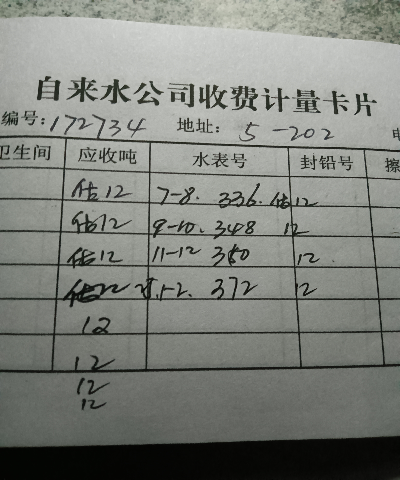 自来水公司收费计量卡片
编号:172734 地址: 5-202
卫生间 应收吨 水表号 封铅号 擦
估12 7-8. 336. 估12
估12 9-10. 348 12
估12 11-12 360 12
估12 1-2. 372 12
12
12
12
12